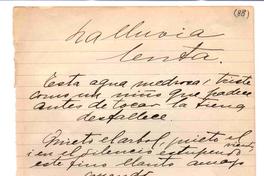 (88)
La lluvia
lenta.
Esta agua medrosa i triste
como un niño que padece
antes de tocar la tierra
desfallece.
Quieto el árbol, quieto el viento
i en el silencio estupendo
este fino llanto amargo
cayendo